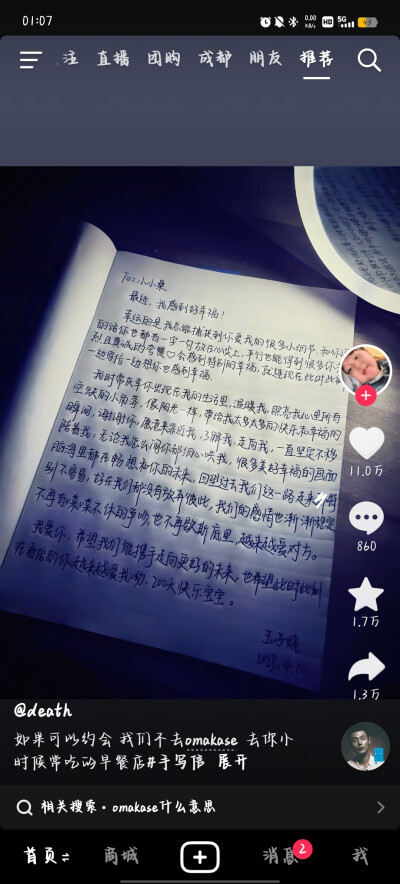 01:07
0.00
KB/s
HD
5G
注 直播 团购 成都 朋友 推荐
To:小小桑
最近，我感到好幸福！
幸运的是我总能捕捉到你爱我的很多小细节，和你说
一边写信一边想你也感到幸福。
我时常庆幸你出现在我的生活里，温暖我，照亮我心里所有
空缺的小角落，像阳光一样，带给我太多太多的快乐和幸福的
瞬间，谢谢你，愿意来靠近我，了解我，走向我，一直坚定不移
陪着我，无论我怎么闹你都細心哄我，很多美好幸福的画面
脑海里都在畅想和你的未来，回望过去我们这一路走来
别不容易，好在我们都没有放弃彼此，我们的感情也渐渐稳定
不再有喋喋不休的争吵，也不再歇斯底里，越来越爱对方。
我爱你，希望我们能携手走向更好的未来，也希望此时此刻
在看信的你越来越爱我呦，200天快乐宝宝。
玉子烧
11.0万
860
1.7万
1.3万
@death
如果可以约会 我们不去omakase 去你小
时候常吃的早餐店#手写信 展开
相关搜索·omakase什么意思
首页 商城 消息 2 我